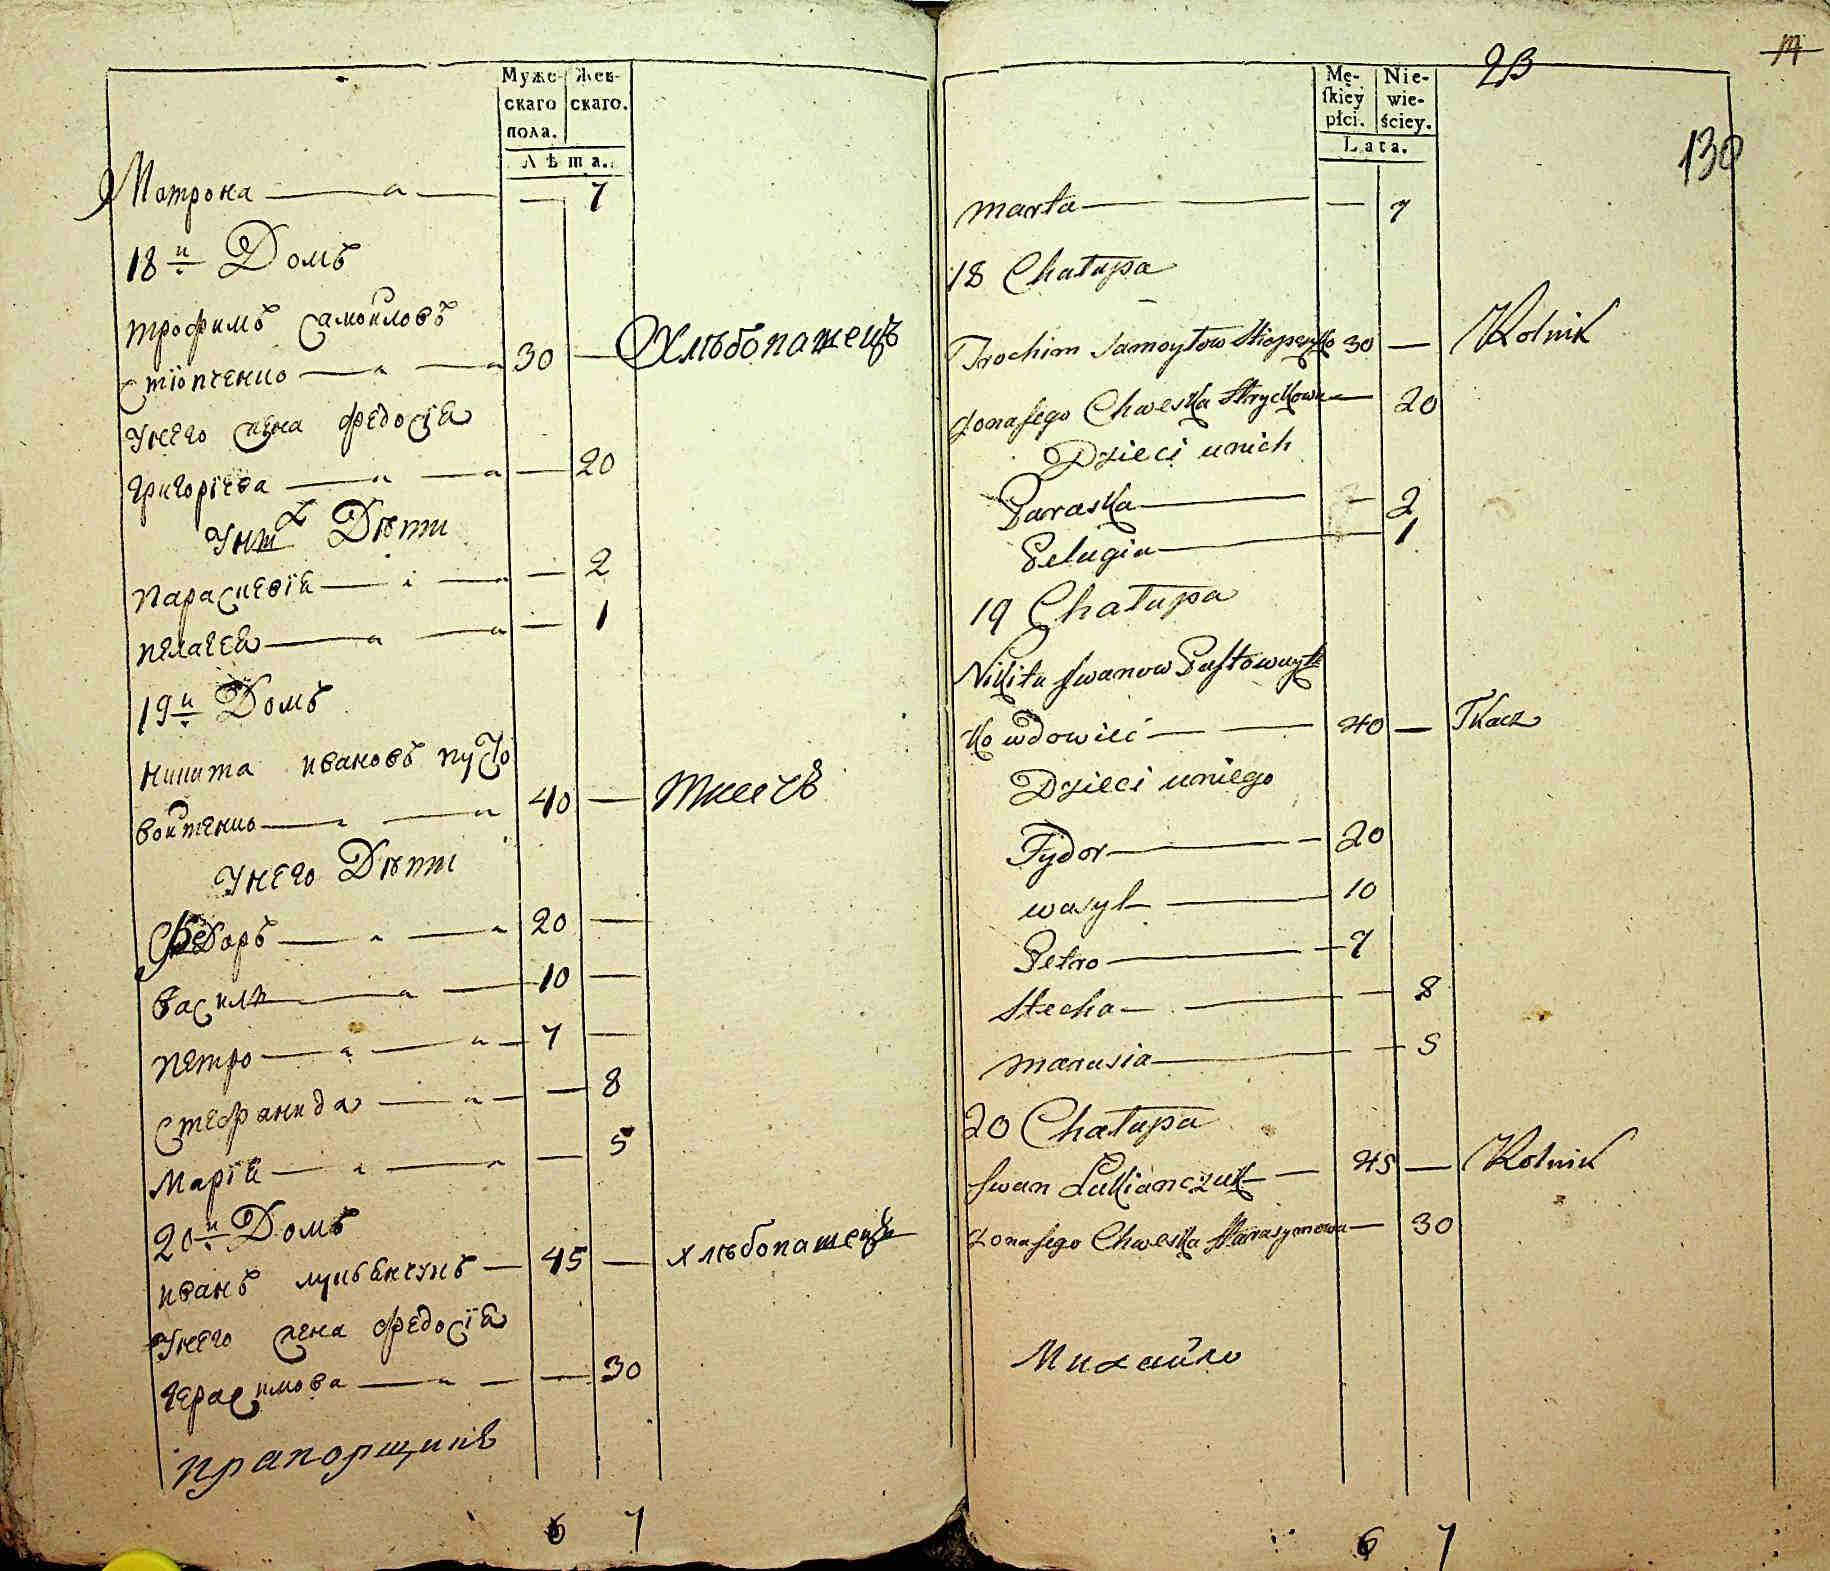 Муже-
скаго
пола.
Жен-
скаго.
Лѣта.
Матрона 7
18й Домъ
трофимъ самойловъ
стіопченко 30 Хлѣбопашецъ
Унего жена федосія
григоріева 20
Унихъ Дѣти
параскевія 2
пелагея 1
19й Домъ
никита ивановъ пусто
войтенко 40 ткачъ
Унего Дѣти
Федоръ 20
василь 10
петро 7
стефанида 8
Марія 5
20й Домъ
иванъ лукьянчукъ 45 хлѣбопашецъ
Унего жена федосія
герасимова 30
прапорщикъ
6 7
14
23
130
Mę-
skiey
płci.
Nie-
wie-
ściey.
Lata.
Marta 7
18 Chałupa
Trochim Samoyłow 30 Rolnik
żona jego Chweska 20
Dzieci unich
Paraska 2
Pelagia 1
19 Chałupa
Nikita Iwanow Pustowoyte
ko wdowiec 40 Tkacz
Dzieci uniego
Fydor 20
wasyl 10
Petro 7
Stecha 8
Marusia 5
20 Chałupa
Iwan Łukianczuk 45 Rolnik
żona jego Chweska Harasymowa 30
Михайло
6 7